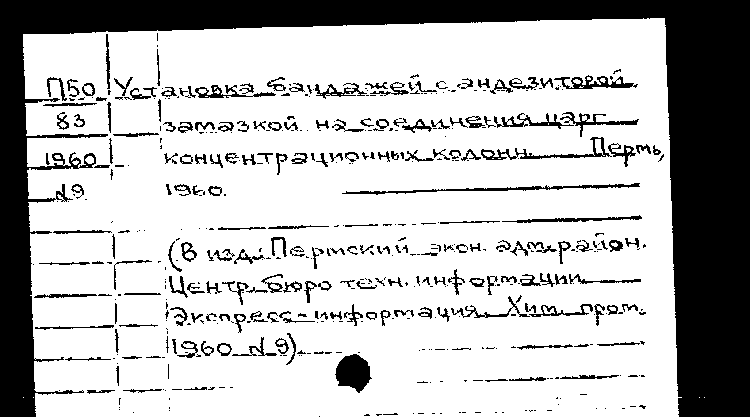 П50 Установка бандажей с андезитовой
83 замазкой на соединения царг
1960 концентрационных колонн. Пермь,
№9 1960.
(В изд.: Пермский экон. адм. район.
Центр. бюро техн. информации.
Экспресс-информация. Хим. пром.
1960 №9)